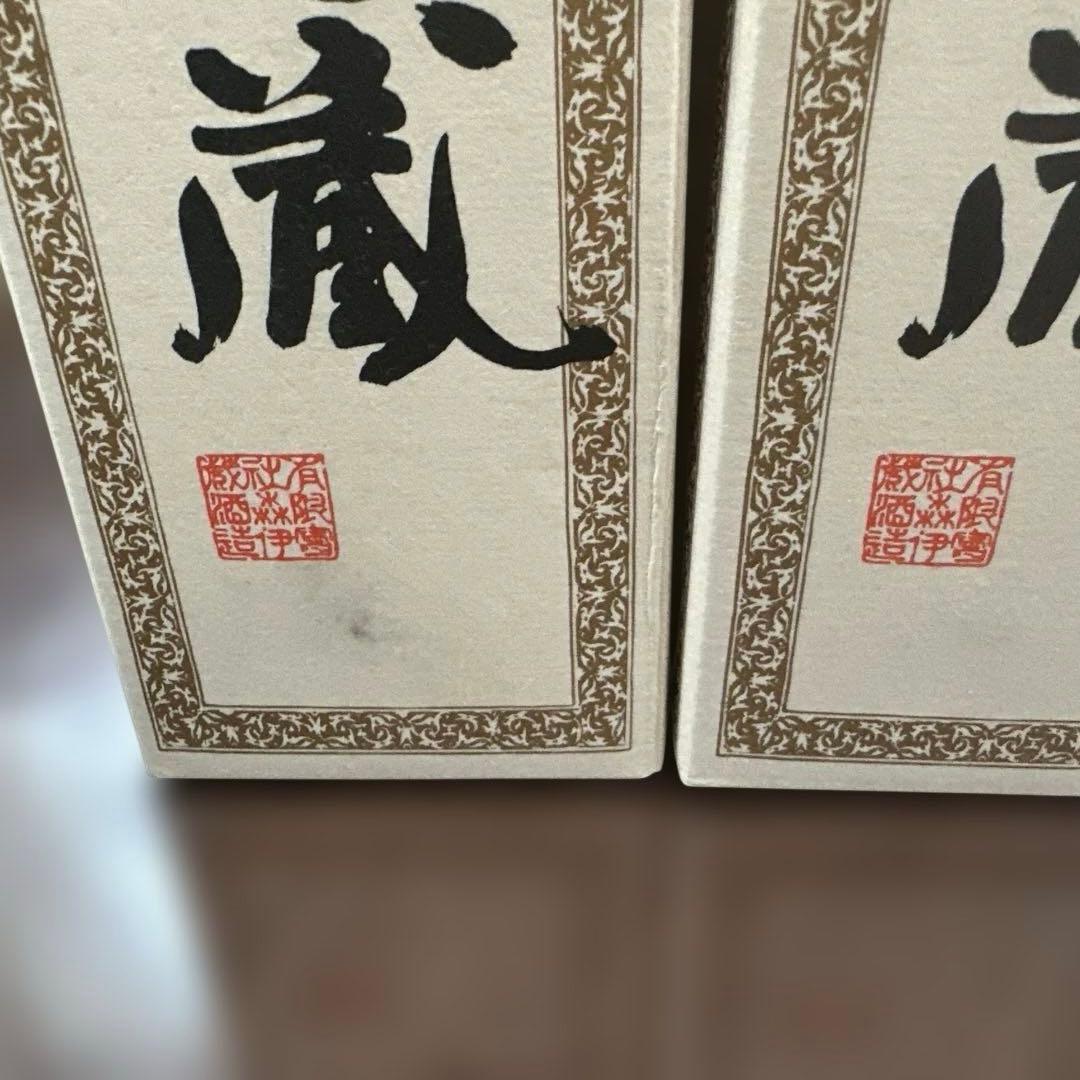 蔵
有限會
社森伊
蔵酒造
有限會
社森伊
蔵酒造